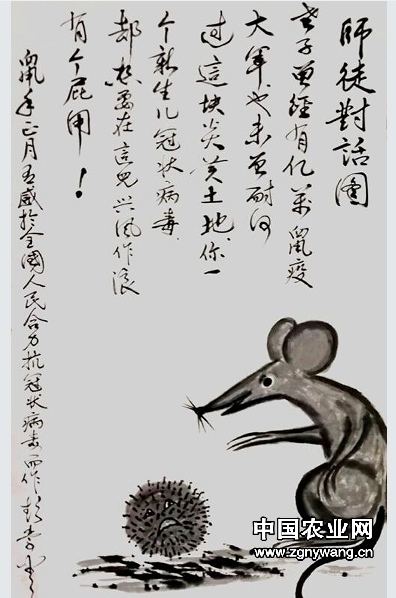 師徒對話圖
老子曾經有億萬鼠疫
大軍也未曾耐何
过這块炎黄土地你一
个新生儿冠状病毒
都想要在這兒兴风作浪
有个屁用！
鼠年正月有感於全國人民合力抗冠狀病毒而作
中国农业网
www.zgnywang.cn